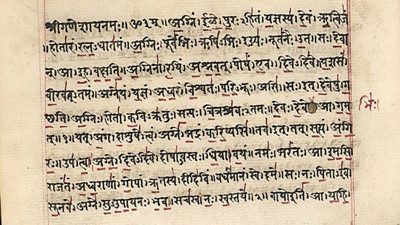 श्रीगणेशायनमः॥ उ३म्॥ अग्निं। ईळे। पुरःऽहितं। यज्ञस्य। देवं। ऋत्विजं
।होतारं। रत्नऽधातमं। अग्निः। पूर्वेभिः। ऋषिऽभिः। ईड्यः। नूतनैः। उत। सः। देवा
न्। आ। इह। वक्षति। अग्निना। रयिं। अश्नवत्। पोषं। एव। दिवेऽदिवे। यशसं।
वीरवत्ऽतमं। अग्ने। यं। यज्ञं। अध्वरं। विश्वतः। परिऽभूः। असि। सः। इत्। देवेषु। ग
च्छति। अग्निः। होता। कविऽक्रतुः। सत्यः। चित्रश्रवःऽतमः। देवः। देवे। आ। गम
भिः।
त्॥१॥ यत्। अंग। दाशुषे। त्वं। अग्ने। भद्रं। करिष्यसि। तव। इत्। तत्। सत्यं। अंगि
रः। उप। त्वा। अग्ने। दिवेऽदिवे। दोषाऽवस्तः। धिया। वयं। नमः। भरंतः। आ। इमसि
राजंतं। अध्वराणां। गोपां। ऋतस्य। दीदिविं। वर्धमानं। स्वे। दमे। सः। नः। पिताऽइव
सूनवे। अग्ने। सुऽउपायनः। भव। सचस्व। नः। स्वस्तये॥२॥ वायो इति। आ। याहि।